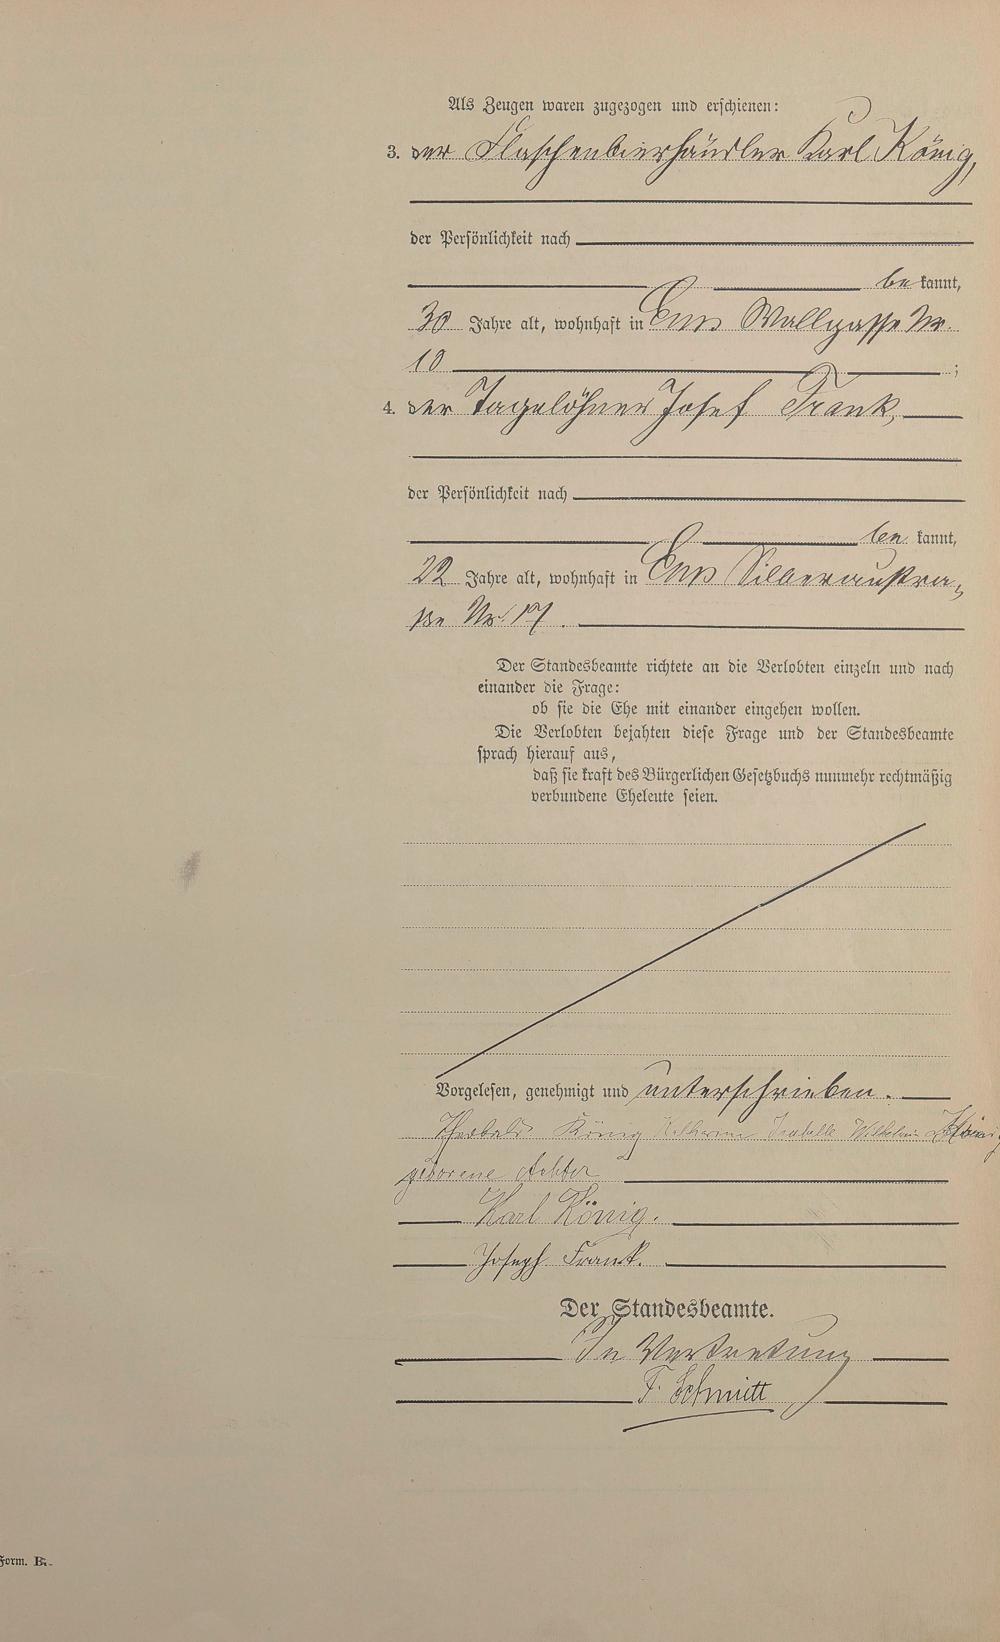 Als Zeugen waren zugezogen und erschienen:
3. der Flaschenbierhändler Karl König,
der Persönlichkeit nach
be kannt,
30 Jahre alt, wohnhaft in Ems Wallgasse Nr.
10 ;
4. der Tagelöhner Josef Frank,
der Persönlichkeit nach
be kannt,
22 Jahre alt, wohnhaft in Ems Silberaustra-
ße Nr. 17.
Der Standesbeamte richtete an die Verlobten einzeln und nach
einander die Frage:
ob sie die Ehe mit einander eingehen wollen.
Die Verlobten bejahten diese Frage und der Standesbeamte
sprach hierauf aus,
daß sie kraft des Bürgerlichen Gesetzbuchs nunmehr rechtmäßig
verbundene Eheleute seien.
Vorgelesen, genehmigt und unterschrieben.
König Katharina König
geborene
Karl König.
Joseph Frank.
Der Standesbeamte.
In Vertretung
F. Schmitt
Form. B.